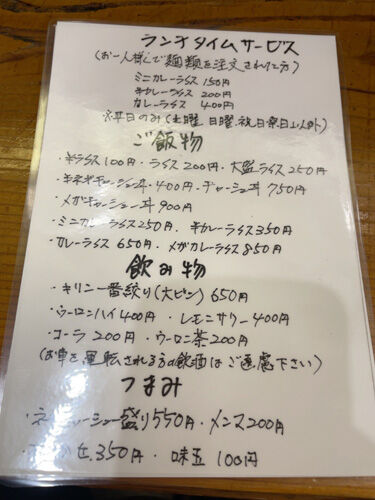 ランチタイムサービス
(お一人様で麺類を注文された方)
ミニカレーライス 150円
半カレーライス 200円
カレーライス 400円
※平日のみ(土曜、日曜、祝日祭日以外)
ご飯物
・半ライス100円・ライス200円・大盛ライス250円
・チャーシュー丼・400円・チャーシュー丼 750円
・メガチャーシュー丼 900円
・ミニカレーライス250円、半カレーライス350円
・カレーライス 650円、メガカレーライス850円
飲み物
・キリン一番絞り(大ビン) 650円
・ウーロンハイ400円・レモンサワー400円
・コーラ 200円・ウーロン茶200円
(お車を運転される方の飲酒はご遠慮下さい)
つまみ
・ネギチャーシュー盛り550円・メンマ200円
350円・味玉 100円